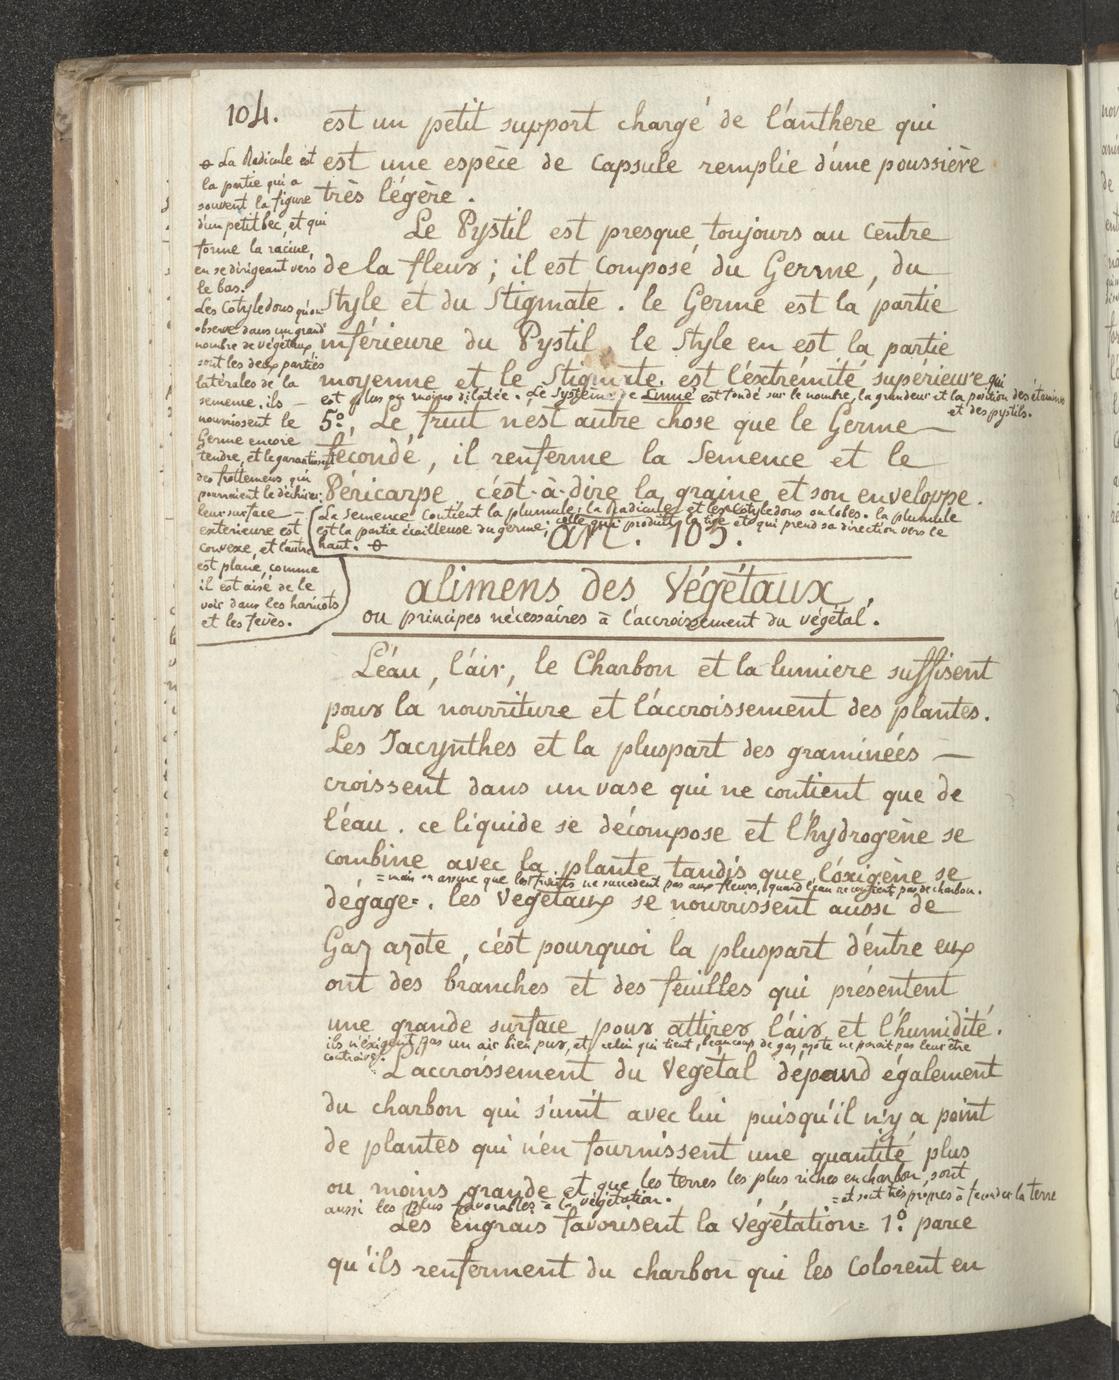 104.
est un petit support chargé de l'anthere qui
est une espèce de capsule remplie d'une poussière
très légère.
Le Pystil est presque toujours au Centre
de la fleur ; il est composé du Germe, du
Style et du Stigmate. le Germe est la partie
inférieure du Pystil, le Style en est la partie
moyenne et le Stigmate est l'éxtrémité supérieure qui
est plus ou moins dilatée. Le Systême de Linné est fondé sur le nombre, la grandeur et la position des étamines
et des pystils.
5.º, Le fruit n'est autre chose que le Germe —
fécondé, il renferme la Semence et le
Péricarpe c'est-à-dire la graine et son enveloppe.
La Semence contient la plumule, la Radicule et les Cotyledons ou lobes. la plumule
est la partie écailleuse du germe; celle qui produit la tige et qui prend sa direction vers le
haut. ⊖
⊖ La Radicule est
la partie qui a
souvent la figure
d'un petit bec, et qui
forme la racine,
en se dirigeant vers
le bas.
Les Cotyledons qu'on
observe dans un grand
nombre de végétaux
sont les deux parties
latérales de la
semence. ils —
nourrissent le
Germe encore
tendre, et le garantissent
des frottemens qui
pourraient le déchirer;
leur surface —
extérieure est
convexe, et l'autre
est plane, comme
il est aisé de le
voir dans les haricots
et les fèves.
art. 105.
alimens des Végétaux,
ou principes nécessaires à l'accroissement du végétal.
L'éau, l'air, le Charbon et la lumiere suffisent
pour la nourriture et l'accroissement des plantes.
Les Jacynthes et la pluspart des graminées —
croissent dans un vase qui ne contient que de
l'éau. ce liquide se décompose et l'hydrogène se
combine avec la plante tandis que l'óxigène se
= mais on assure que les fruits ne succedent pas aux fleurs, quand l'eau ne contient pas de charbon.
dégage =. les Végétaux se nourrissent aussi de
Gaz azote, c'ést pourquoi la pluspart d'éntre eux
ont des branches et des feuilles qui présentent
une grande surface pour attirer l'air et l'humidité.
ils n'éxigent pas un air bien pur, et celui qui tient beaucoup de gaz azote ne parait pas leur être
contraire.
L'accroissement du Végétal depand également
du charbon qui s'unit avec lui puisqu'il n'y a point
de plantes qui n'en fournissent une quantité plus
ou moins grande et que les terres les plus riches en charbon, sont
aussi les plus favorables à la végétation.
= et sont très propres à feconder la terre
Les engrais favorisent la Végétation = 1.º parce
qu'ils renferment du charbon qui les colorent en